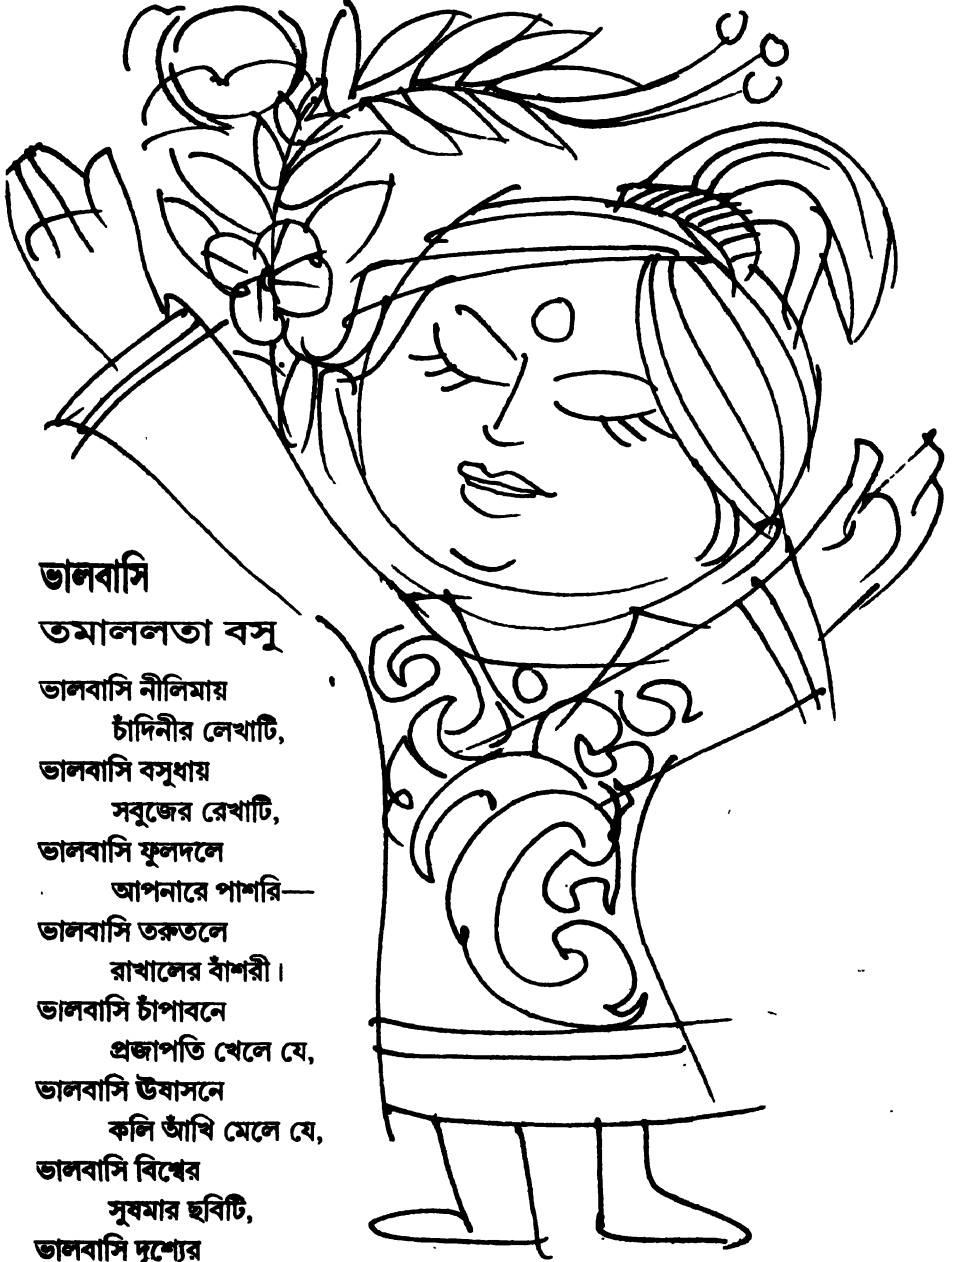 ভালবাসি
তমাললতা বসু
ভালবাসি নীলিমায়
চাঁদিনীর লেখাটি,
ভালবাসি বসুধায়
সবুজের রেখাটি,
ভালবাসি ফুলদলে
আপনারে পাশরি—
ভালবাসি তরুতলে
রাখালের বাঁশরী।
ভালবাসি চাঁপাবনে
প্রজাপতি খেলে যে,
ভালবাসি ঊষাসনে
কলি আঁখি মেলে যে,
ভালবাসি বিশ্বের
সুষমার ছবিটি,
ভালবাসি দৃশ্যের